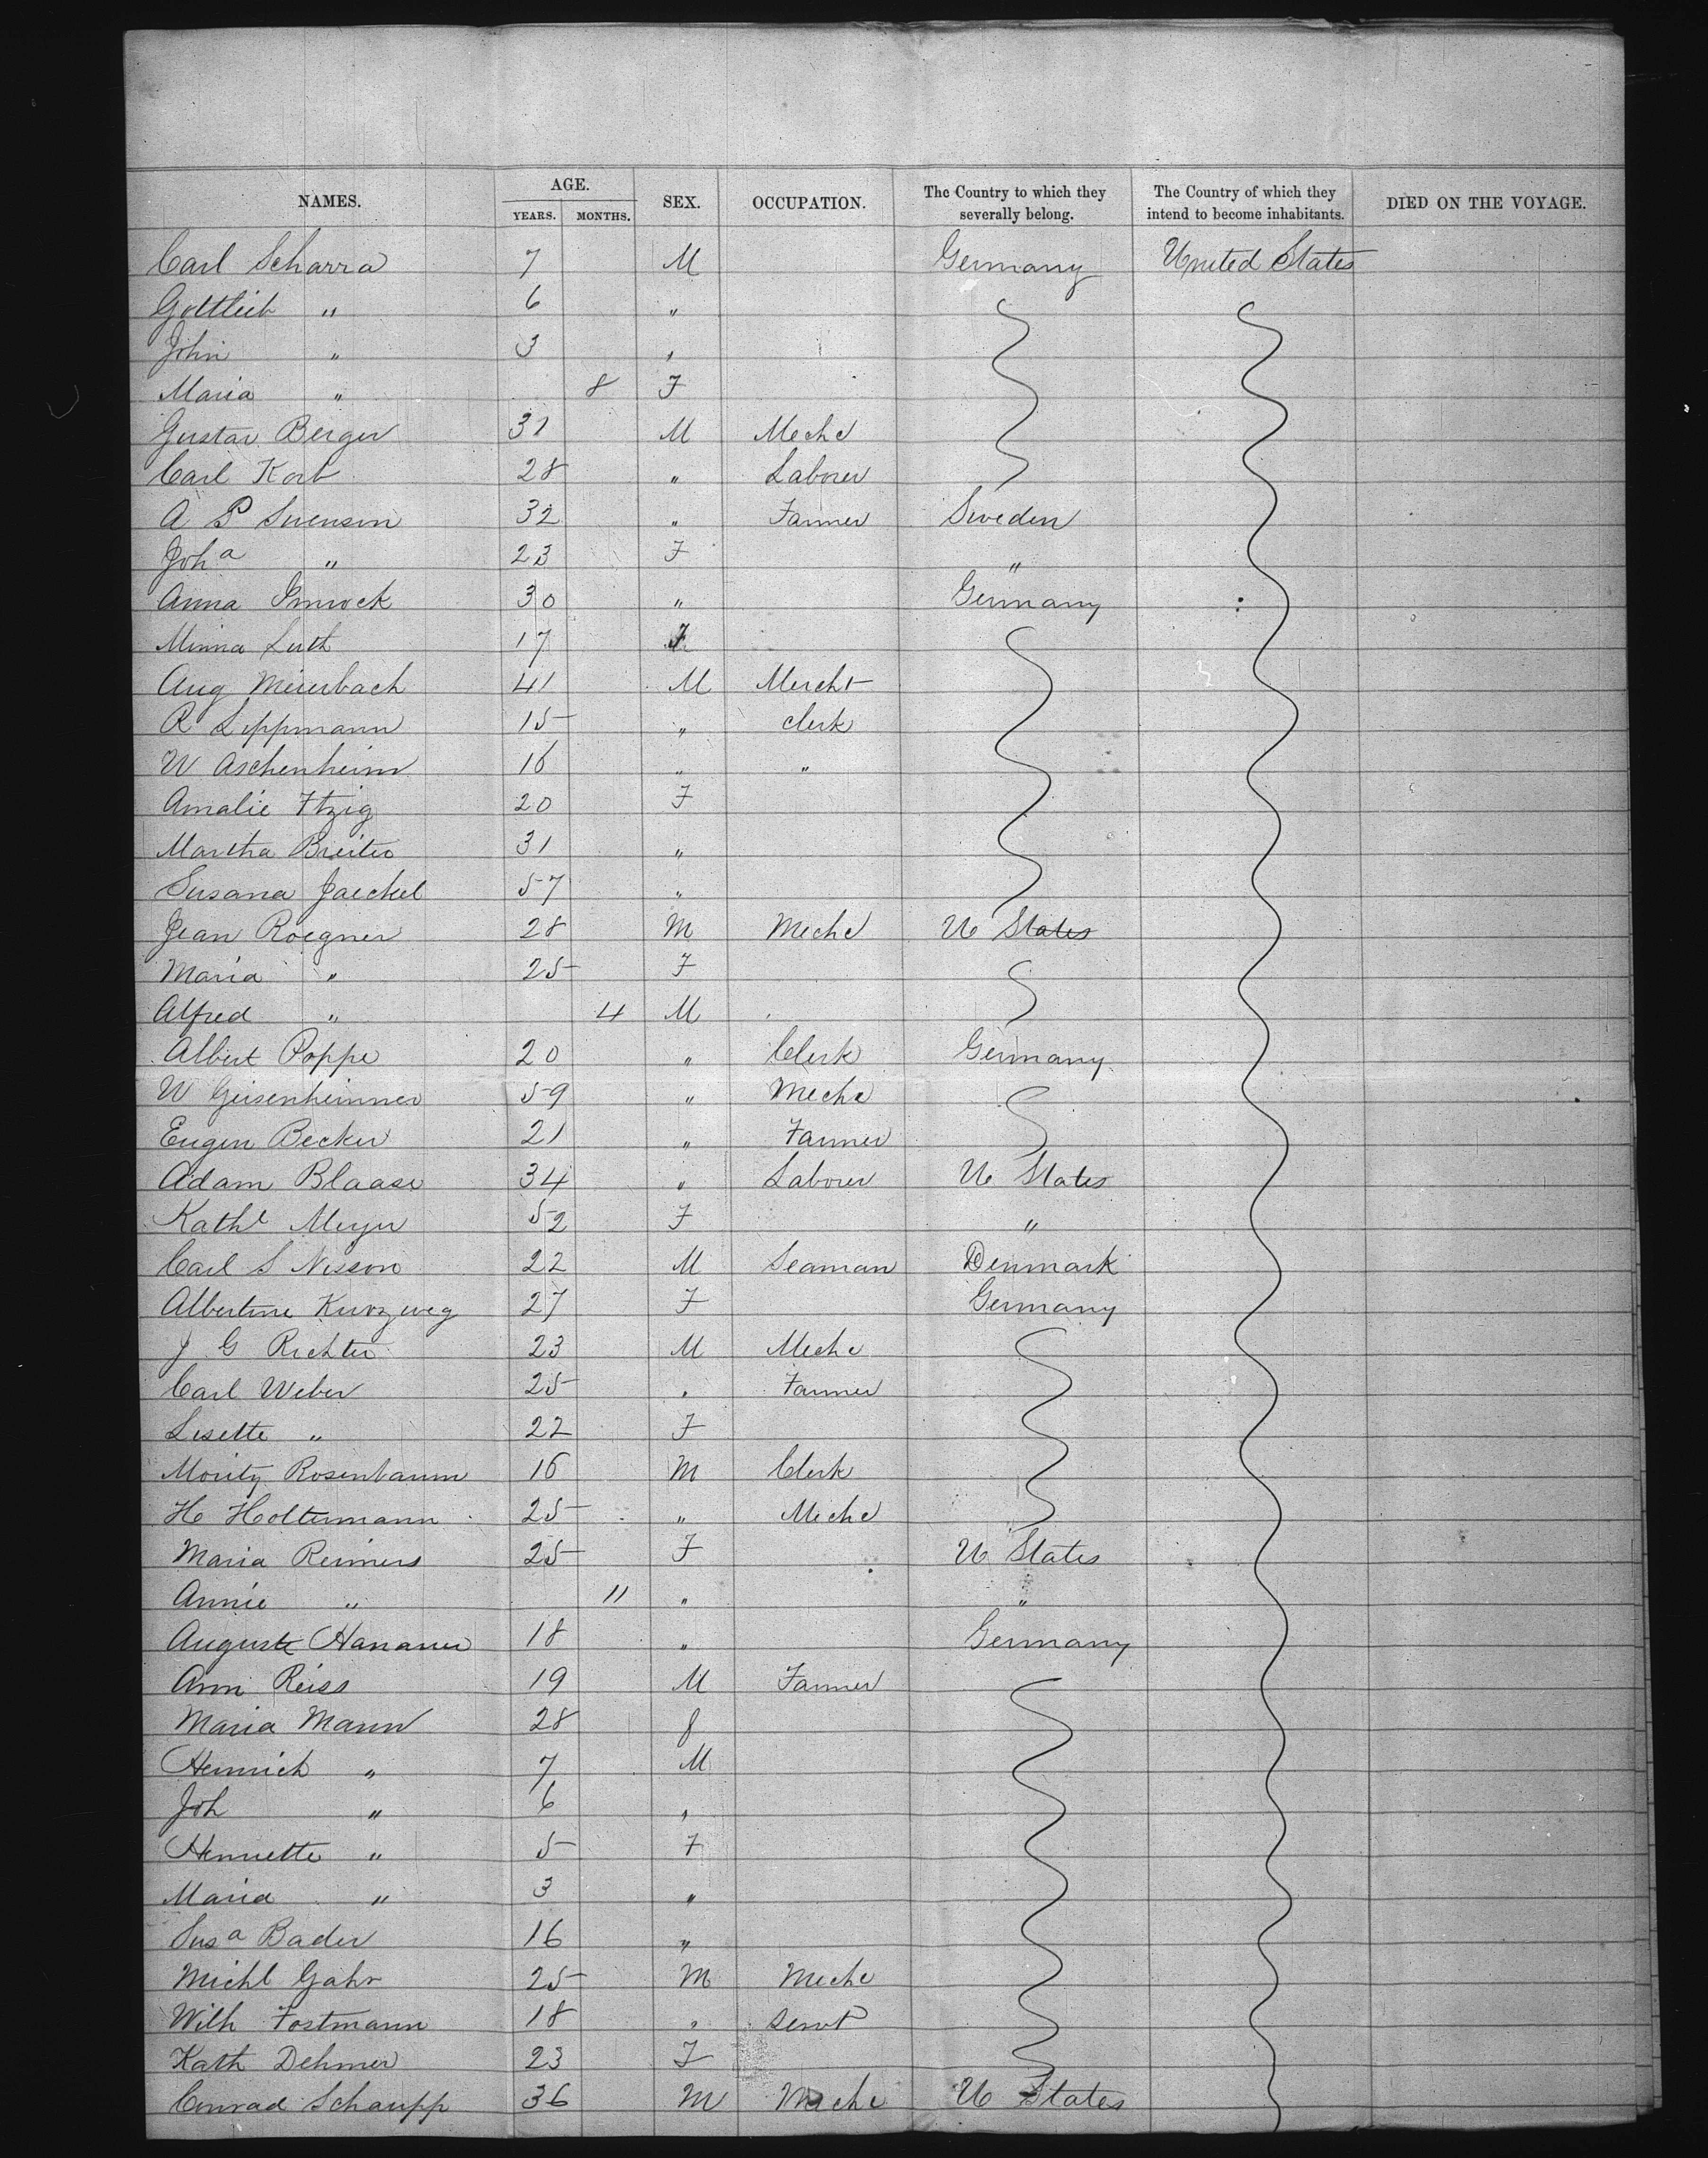 NAMES. AGE. YEARS. MONTHS. SEX. OCCUPATION. The Country to which they severally belong. The Country of which they intend to become inhabitants. DIED ON THE VOYAGE.
Carl Scharra 7 M Germany United States
Gottlieb " 6 "
John " 3 "
Maria " 8 F
Gustav Berger 31 M Mechc
Carl Korb 28 " Laborer
A P Svenson 32 " Farmer Sweden
Joha " 23 F "
Anna 30 " Germany
Minna Luth 17 F
Aug Meierbach 41 M Mercht
R Lippmann 15 " clerk
W Aschenheim 16 " "
Amalie Itzig 20 F
Martha Breiter 31 "
Susana Jaeckel 57 "
Jean Roegner 28 M Mechc U States
Maria " 25 F
Alfred " 4 M
Albert Poppe 20 " Clerk Germany
W Geisenheimer 59 " Mechc
Eugen Becker 21 " Farmer
Adam Blaase 34 " Laborer U States
Kathe Meyer 52 F "
Carl S Nisson 22 M Seaman Denmark
Albertine Kurzweg 27 F Germany
J G Richter 23 M Mechc
Carl Weber 25 " Farmer
Lisette " 22 F
Moritz Rosenbaum 16 M Clerk
H Holtermann 25 " Mechc
Maria Reimers 25 F U States
Annie " 11 " "
Auguste Hanauer 18 " Germany
Aron Reiss 19 M Farmer
Maria Mann 28 f
Heinrich " 7 M
Joh " 6 "
Henriette " 5 F
Maria " 3 "
Susa Bader 16 "
Michl Gahr 25 M Mechc
Wilh Fostmann 18 " Servt
Kath Dehmer 23 F
Conrad Schaupp 36 M Mechc U States